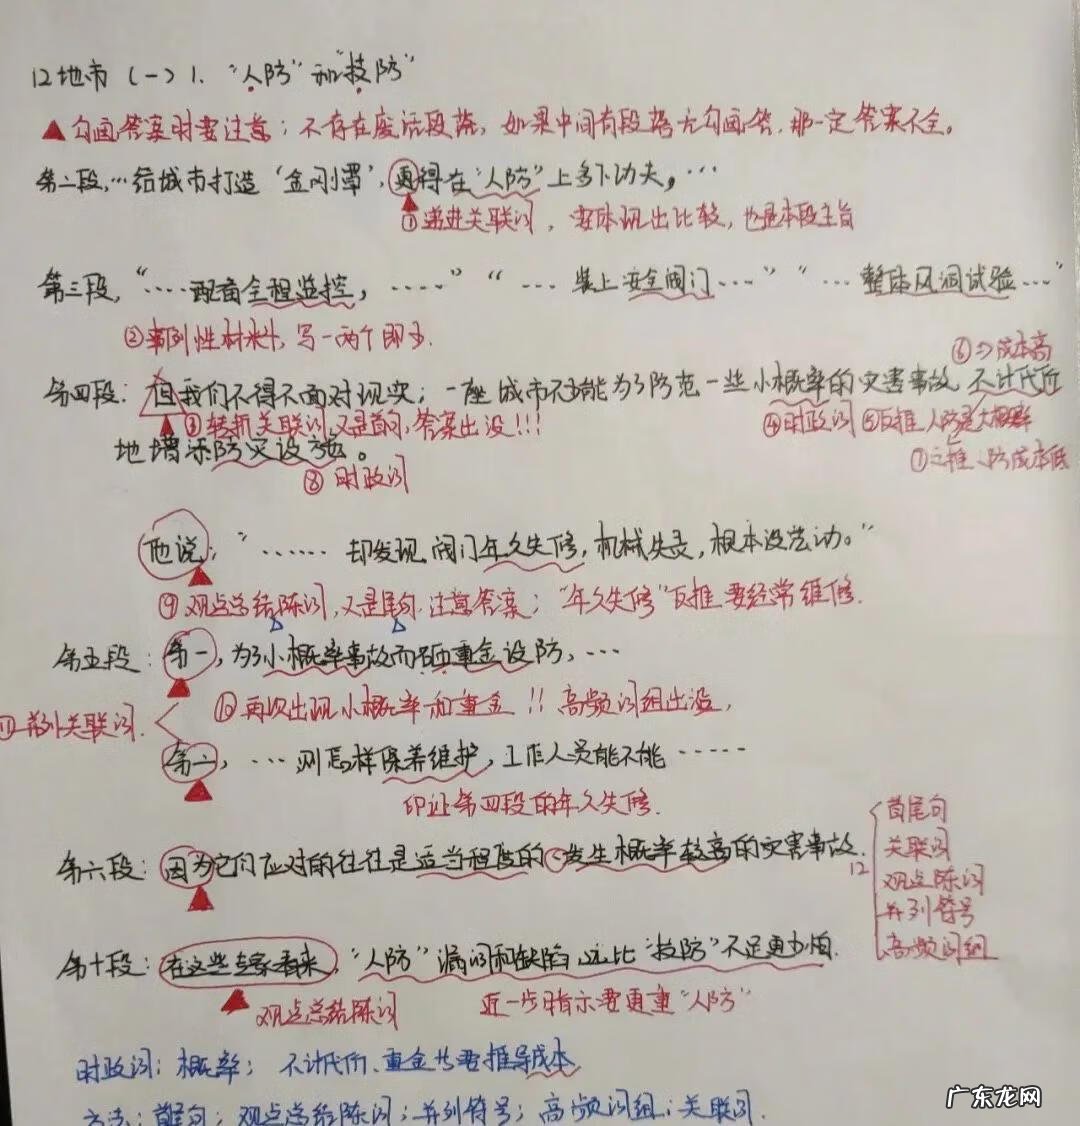 12地市（一）1. “人防”和“技防”
▲勾画答案时要注意：不存在废话段落，如果中间有段落无勾画答，那一定答案不全。
第二段，…给城市打造‘金刚罩’，更得在“人防”上多下功夫，…
①递进关联词，要体现出比较，也是本段主旨
第三段，“……配备全程监控，……”“…装上安全阀门…”“…整体风洞试验…”
②案例性材料，写一两个即可.
⑥⇒成本高
第四段：但我们不得不面对现实：一座城市不可能为了防范一些小概率的灾害事故不计代价
③转折关联词，又是首句，答案出没!!!
④时政词 ⑤反推人防是大概率
地增添防灾设施。
⑦之推人防成本低
⑧时政词
他说：“……却发现阀门年久失修，机械失灵，根本没法动。”
⑨观点总结陈词，又是尾句，注意答案；“年久失修”反推要经常维修.
第五段：第一，为了小概率事故而砸重金设防，…
⑩再次出现小概率和重金!!高频词组出没，
⑪并列关联词.
第二，…则怎样保养维护，工作人员能不能……
印证第四段的年久失修.
第六段：因为它们应对的往往是适当程度的、发生概率较高的灾害事故.
12
首尾句
关联词
观点陈词
并列符号
高频词组
第十段：在这些专家看来，“人防”漏洞和缺陷，远比“技防”不足更可怕.
观点总结陈词
近一步指示要更重“人防”
时政词：概率；不计代价、重金共要推导成本
方法：首尾句；观点总结陈词；并列符号；高频词组；关联词.
广东龙网